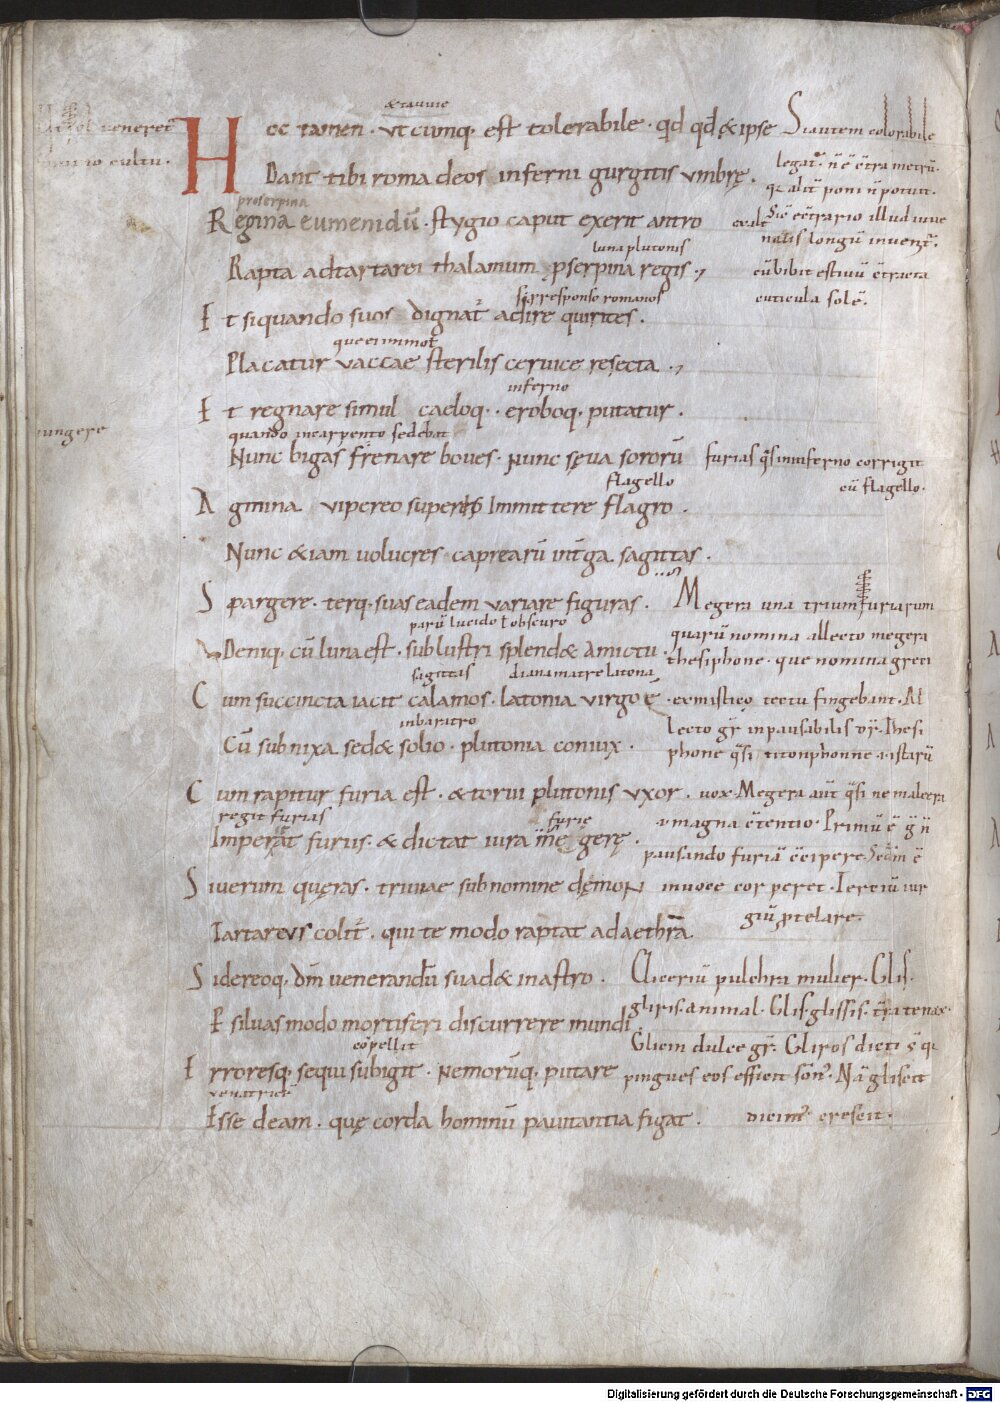 &tamne
Hoc tamen · utcumq; est tolerabile · qd qđ & ipse
Dant tibi roma deos inferni gurgitis umbrę.
proserpina
Regina eumenidū · stygio caput exerit antro
luna plutonis
Rapta ad tartarei thalamum pserpina regis
responso romanos
Et siquando suos dignat adire quirites.
que ei immot
Placatur vaccae sterilis cervice resecta
inferno
Et regnare simul caeloq; eroboq; putatur.
quando incarpento sedebat
Nunc bigas frenare boves · nunc sęva sororū
flagello
Agmina vipereo superis immittere flagro.
Nunc &iam volucres caprearū interga sagittas.
Spargere · terq; suas eadem variare figuras.
parū lucido ł obscuro
Deniq; cū luna est · sublustri splend& amictu
sigittas diana matre latona
Cum succincta iacit calamos · latonia virgo ē
inbaritro
Cū subnixa sed& solio · plutonia coniux.
Cum rapitur furia est · & torvi plutonis uxor.
regit furias furię
Imperat furiis · & dictat iura megerę.
Si verum quęras · triviae sub nomine dęmon
Tartareus colit · qui te modo raptat ad aethra.
Sidereoq; dm venerandū suad& in astro.
Per silvas modo mortiferi discurrere mundi
cōpellit
Erroresq; sequi subigit · nemorūq; putare
venatrice
Esse deam · quę corda hominū pavitantia figat.
veneret
cultu.
iungere
Si autem colorabile
legat · n ē ctra metrū.
poni n potuit.
Sic ecrario illud iuve
nalis longū invenit.
cū bibit estivū ctracta
cuticula solē.
furias qsi in inferno corrigit
cū flagello.
Megera una trium furiarum
quarū nomina allecto megera
thesiphone · que nomina greci
fingebant · Al
lecto gr inpausabilis
phone qsi titonphonne · istarū
vox · Megera aut qsi ne malera
magna ctentio · Primū ē
pausando furiā ccipere · Scdm ē
in voce
giū ptelare.
Gliceriū pulchra mulier · Glis
gliris · animal · Glis · glissis · tra tenax
Glicin dulce gr · Glires dicti s
pingues eos efficit somn · Nā gliscit
dicim crescit.
Digitalisierung gefördert durch die Deutsche Forschungsgemeinschaft - DFG